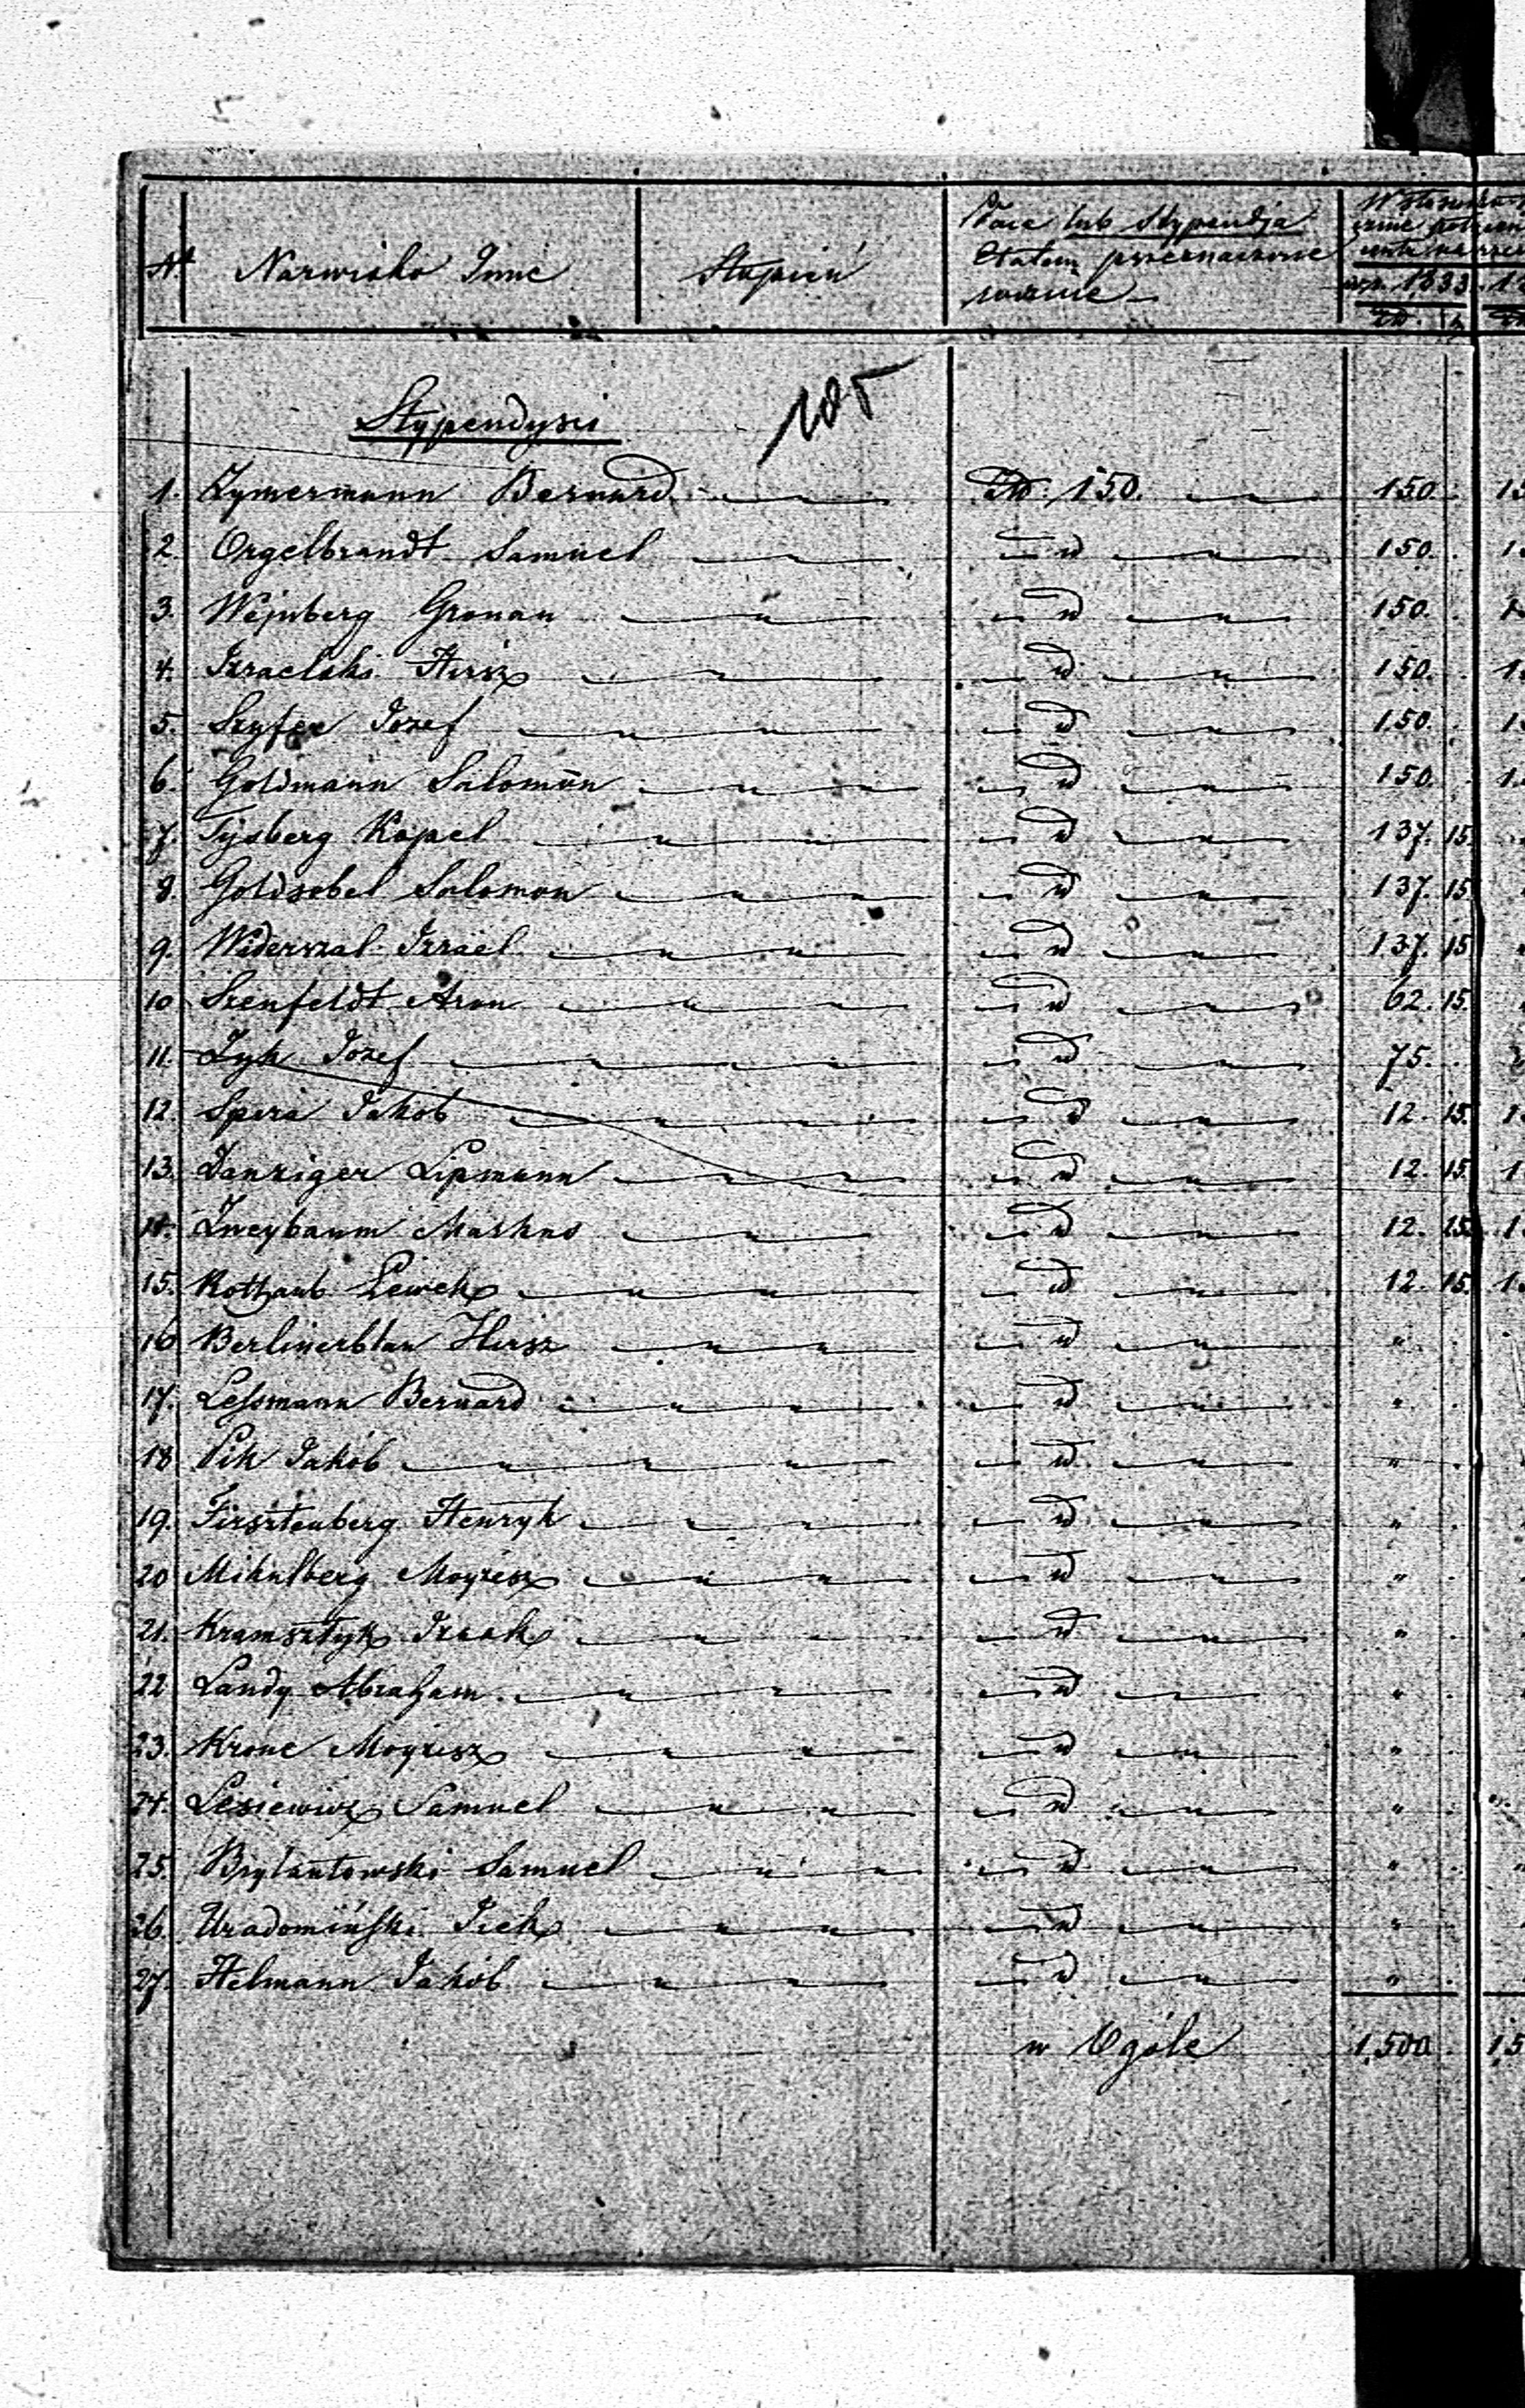 Nr Nazwisko Imie Stopień Płaca lub Stypendja
Etatem przeznaczone
rocznie
1833
Złp.
105
Stypendyści
1. Zymermann Bernard Złp. 150. 150.
2. Orgelbrandt Samuel " d " 150.
3. Wejnberg Gronau " d " 150.
4. Izraelski Hirsz " d " 150.
5. Szyfer Jozef " d " 150.
6. Goldmann Salomon " d " 150.
7. Tysberg Kopel " d " 137. 15.
8. Goldsobel Salomon " d " 137. 15
9. Widerszal Izrael " d " 137. 15
10 Szenfeldt Aron " d " 62. 15.
11. Zyk Jozef " d " 75.
12. Spira Jakób " d " 12. 15.
13. Danziger Lipmann " d " 12. 15.
14. Zweybaum Markus " d " 12. 15.
15. Rottaub Lewek " d " 12. 15.
16 Berlinerblau Hirsz " d " "
17. Lessmann Bernard " d " "
18 Pik Jakób " d " "
19. Firsztenberg Henryk " d " "
20 Mihulberg Moyżesz " d " "
21. Kramsztyk Izaak " d " "
22 Landy Abraham " d " "
23. Krone Moyżesz " d " "
24. Lesiewicz Samuel " d " "
25. Brylantowski Samuel " d " "
26. Uradomiński Icek " d " "
27. Helmann Jakób " d " "
w Ogóle 1,500